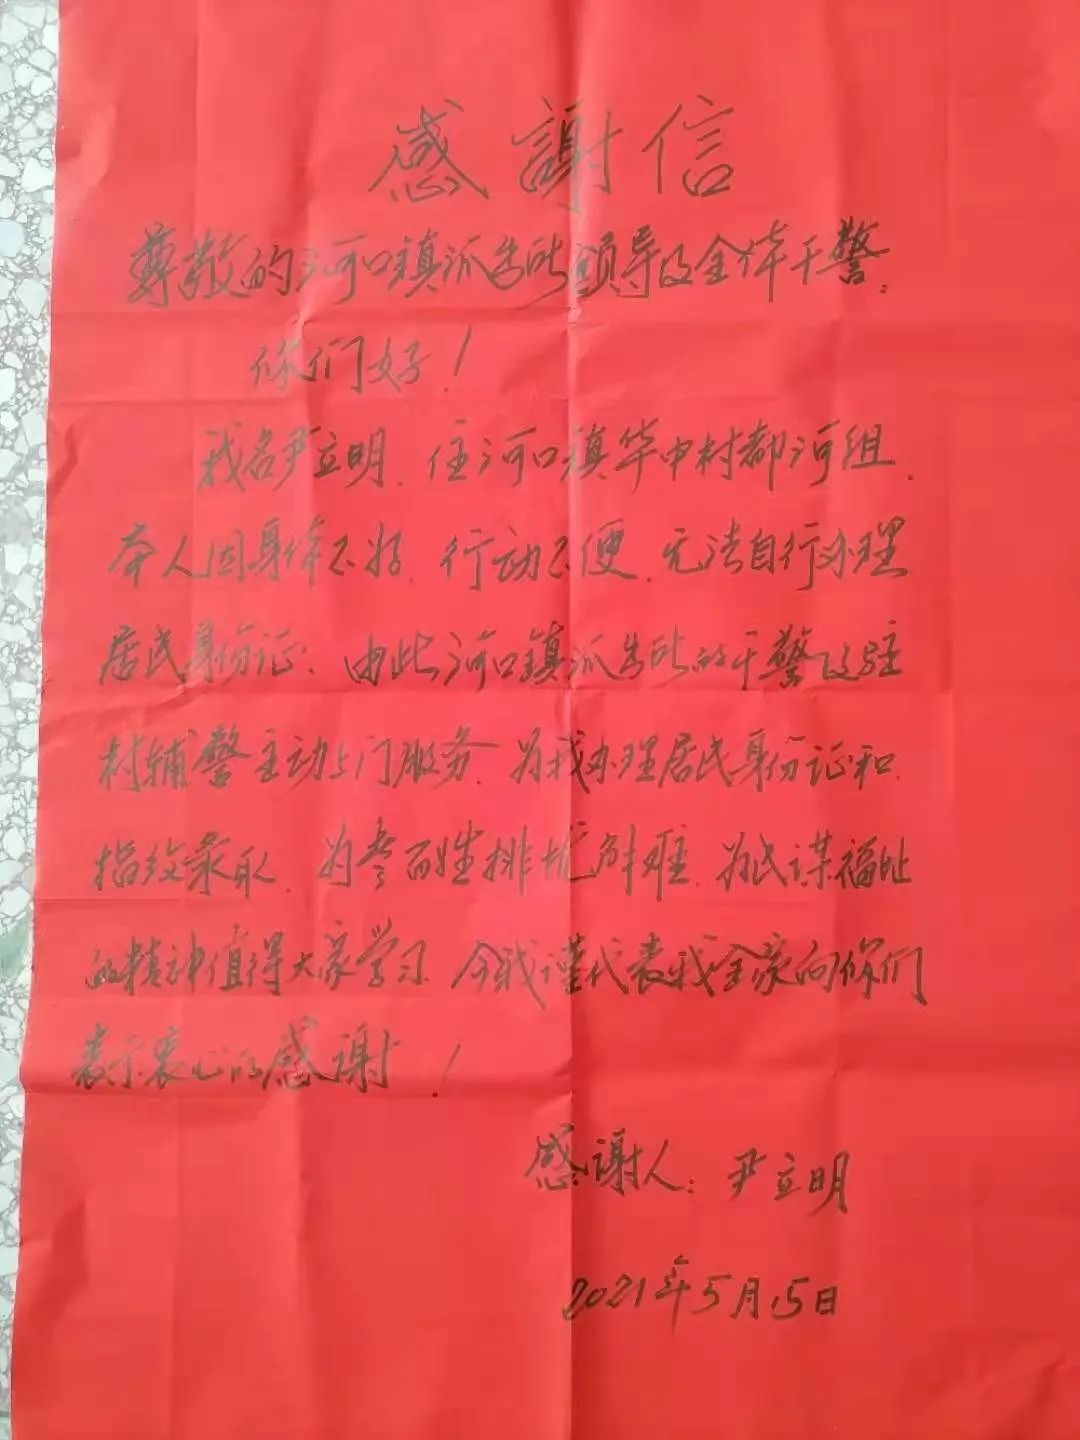 感謝信
尊敬的河口镇派出所领导及全体干警：
你们好！
我名尹立明，住河口镇华中村都河组，
本人因身体不好，行动不便，无法自行办理
居民身份证，由此河口镇派出所的干警及驻
村辅警主动上门服务，为我办理居民身份证和
指纹录取，为老百姓排忧解难，为民谋福址
的精神值得大家学习，今我谨代表我全家向你们
表示衷心的感谢！
感谢人：尹立明
2021年5月15日